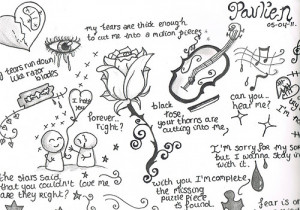 Paulien
05-04-11
my tears are thick enough
to cut me into a million pieces
tears run down
like razor
blades
I hate
you
forever..
right?
black
rose,
your thorns are
cutting into me.
can you..
hear me?
I'm sorry for my
but I wanna stay
with it.
the stars said
that you couldn't love me
are they right?
with you I'm complete,
the missing
puzzle piece
is found.
fear is